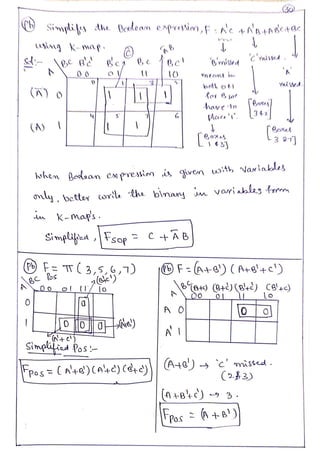 Pb) Simplify the Boolean expression, F = A'C + A'B + AB'C + BC
using K-map.
Sol:-
'B' missed
means in
both 0 & 1
for B we
have to
place '1'.
[Boxes
1 & 3]
'C' missed.
[Boxes
3 & 2]
'A'
missed
[Boxes
3 & 7]
A BC B'C' B'C BC BC'
00 01 11 10
(Ā) 0 1 1 1
(A) 1 1 1
C
ĀB
When Boolean expression is given with variables
only, better write the binary in variables form
in K-map's.
Simplified, F SOP = C + ĀB
Pb) F = π(3,5,6,7)
A BC POS
00 01 11 10
0 0
1 0 0 0
(B'+C')
(A'+B')
(A'+C')
Simplified POS:-
F POS = (A'+B') (A'+C') (B'+C')
Pb) F = (A+B') (A+B'+C')
A BC (B+C) (B+C') (B'+C') (B'+C)
00 01 11 10
A 0 0 0
A' 1
(A+B') → 'C' missed.
(2 & 3)
(A+B'+C') → 3.
F POS = (A+B')